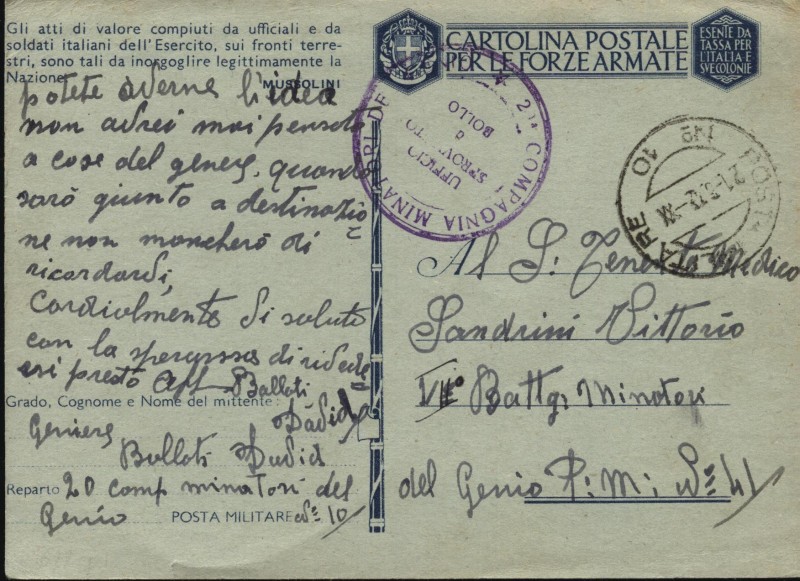 Gli atti di valore compiuti da ufficiali e da
soldati italiani dell'Esercito, sui fronti terre-
stri, sono tali da inorgoglire legittimamente la
Nazione.
MUSSOLINI
potete averne l'idea
non avrei mai pensato
a cose del genere, quando
sarò giunto a destinazio
ne non mancherò di
ricordarvi,
Cordialmente Vi saluto
con la speranza di riveder
vi presto
Balloti
David
Grado, Cognome e Nome del mittente:
Geniere
Balloti David
Reparto 20 comp minatori del
Genio
POSTA MILITARE Nº 10
CARTOLINA POSTALE
PER LE FORZE ARMATE
ESENTE DA
TASSA PER
L'ITALIA E
SVE COLONIE
2ª COMPAGNIA MINATORI DEL
UFFICIO
SPROVVISTO
DI
BOLLO
POSTA MILITARE Nº 10
Al S. Tenente Medico
Sandrini Vittorio
VIIº Battg. Minatori
del Genio P. M. Nº 41